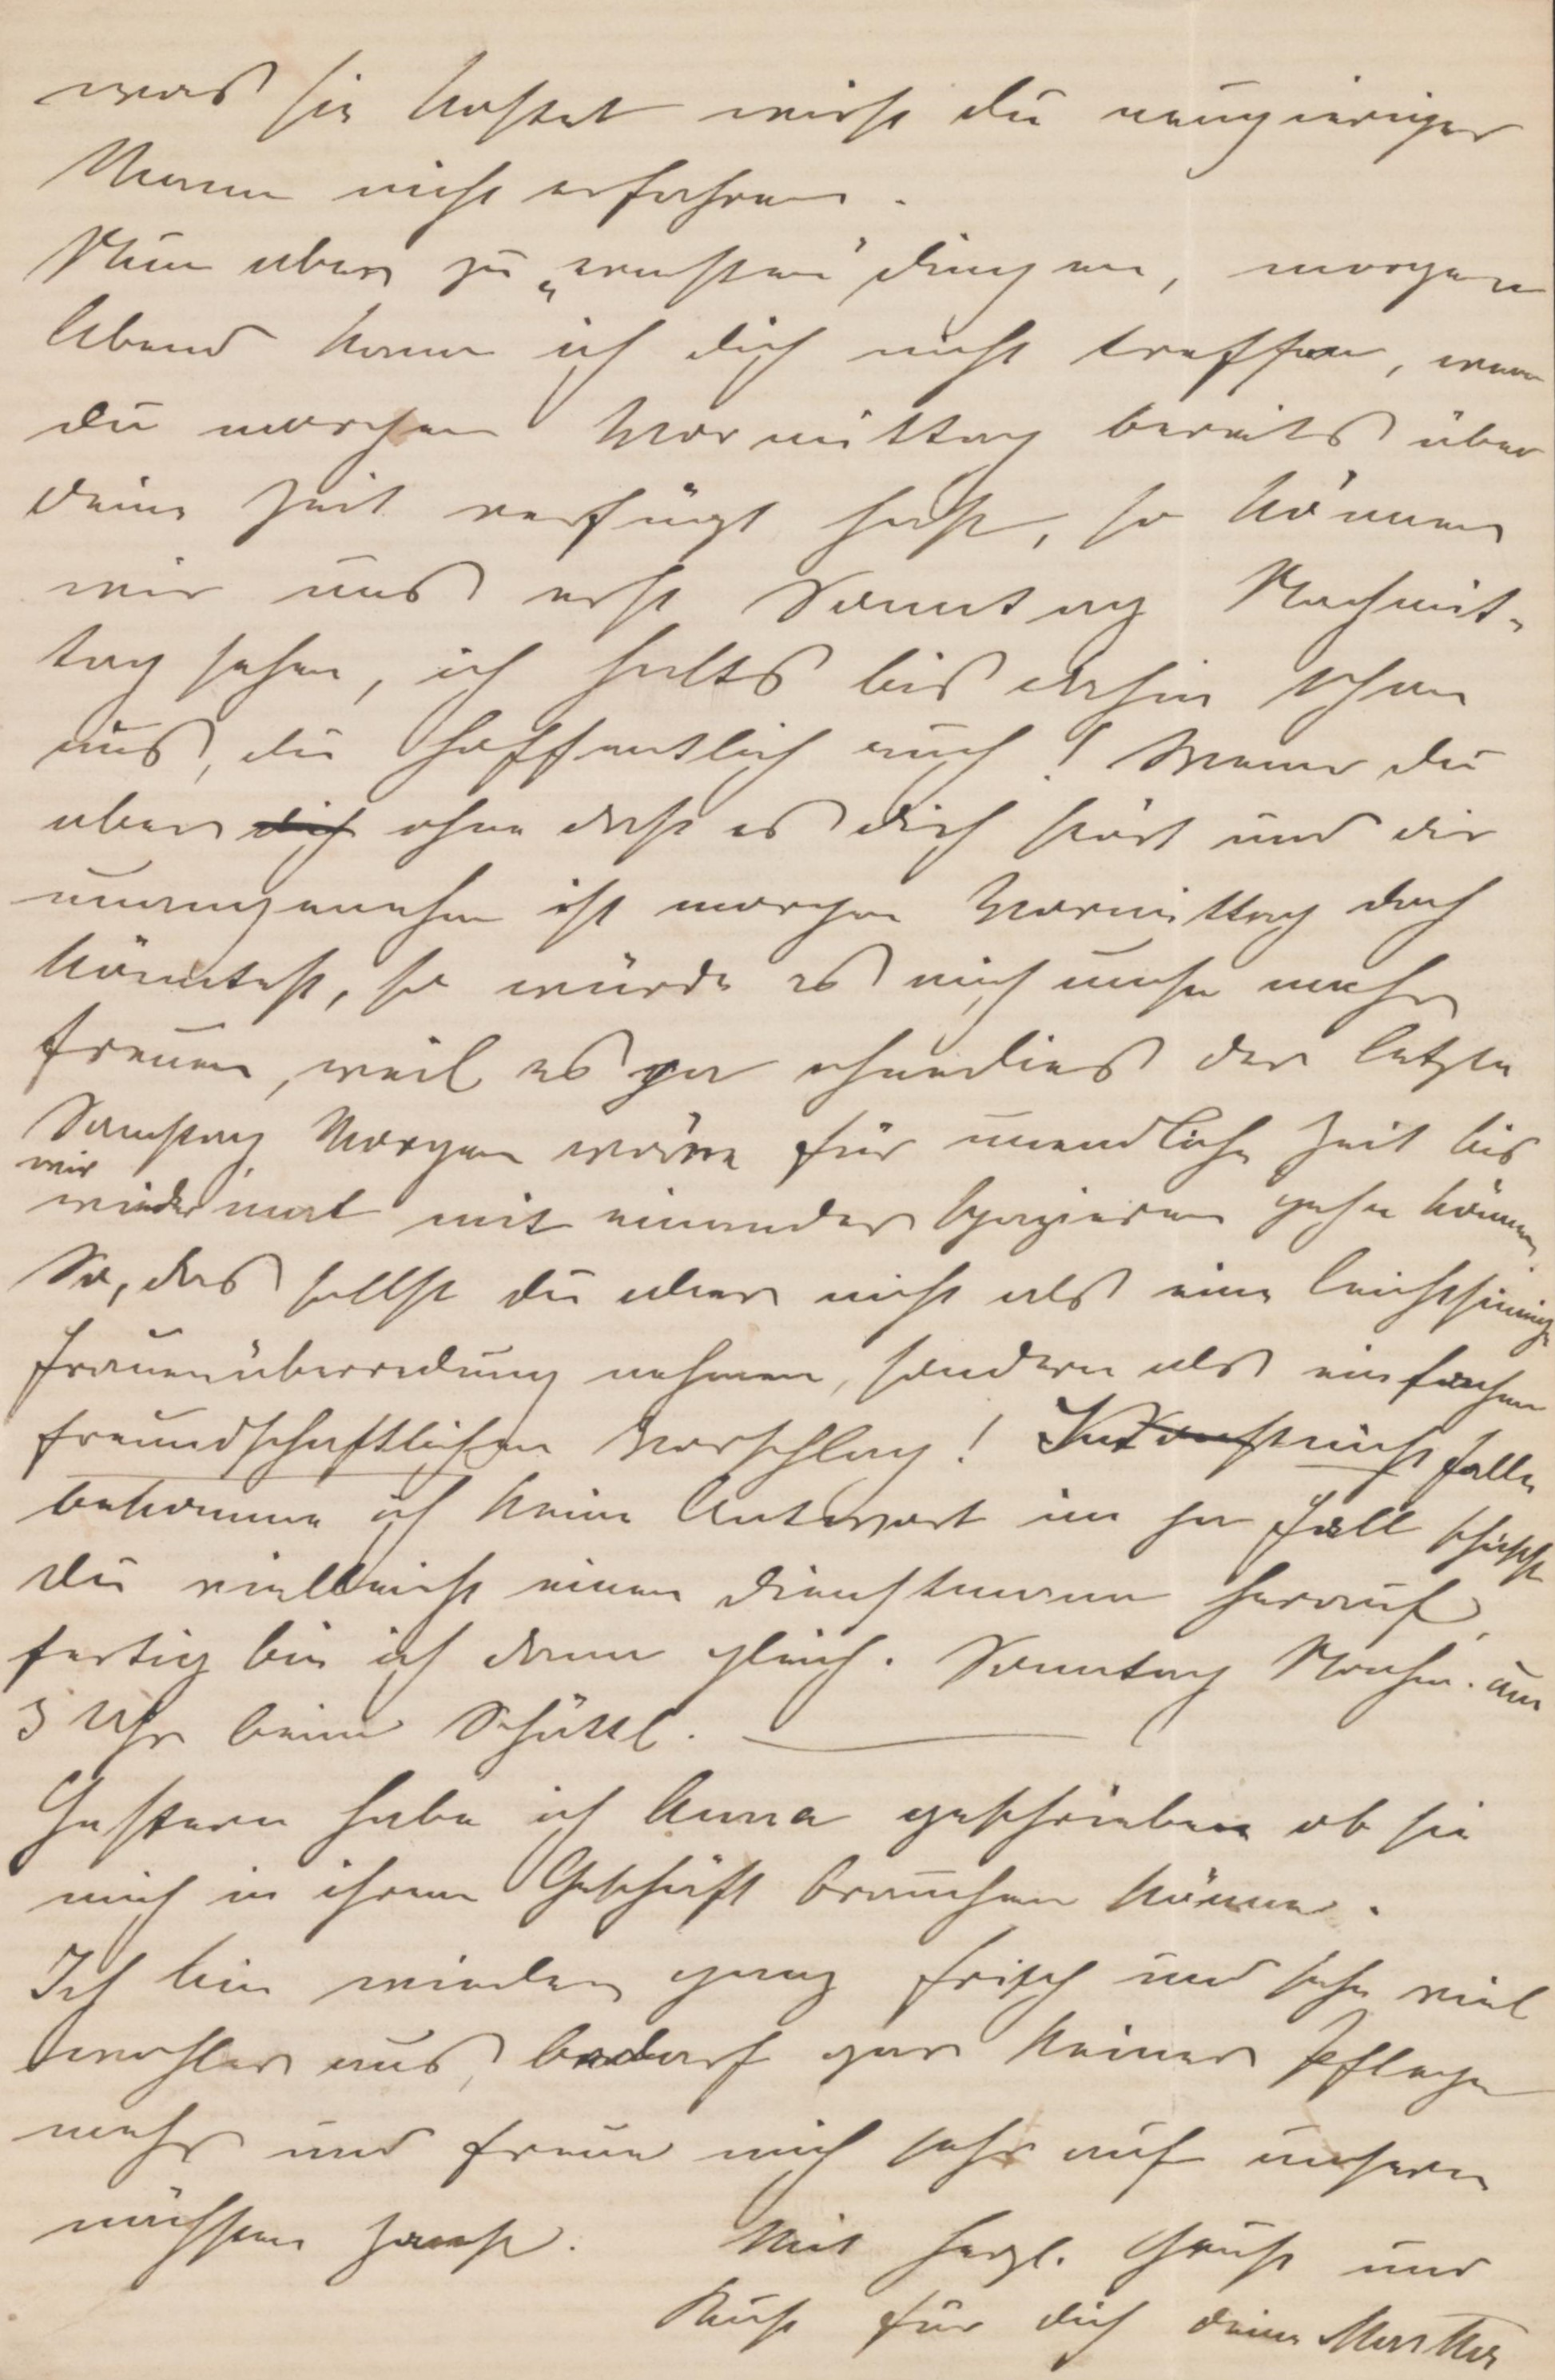 was sie kostet wirst du neugieriger
Mann nicht erfahren.
Nun aber zu „ernsten" dingen, morgen
Abend kann ich dich nicht treffen, wenn
du morgen Vormittag bereits über
deine Zeit verfügt hast, so können
wir uns erst Sonntag Nachmit-
tag sehen, ich halts bis dahin schon
aus, du hoffentlich auch! Wenn du
aber dich ohne daß es dich stört und dir
unangenehm ist morgen Vormittag doch
könntest, so würde es mich umso mehr
freuen, weil es ja ohnedies der letzte
Samstag Morgen wäre für unendliche Zeit bis
wir
wieder mal mit einander spazieren gehn können.
So, das sollst du aber nicht als eine leichtsinnige
Frauenüberredung nehmen, sondern als einfachen
freundschaftlichen Vorschlag! falls
bekomme ich keine Antwort im ja Fall schickst
du vielleicht einen Dienstmann herauf,
fertig bin ich dann gleich. Sonntag Nachm. um
3 Uhr beim Schüttl.
Gestern habe ich Anna geschrieben ob sie
mich in ihrem Geschäft brauchen könne.
Ich bin wieder ganz frisch und sehe viel
wohler aus, bedarf gar keiner Pflege
mehr und freue mich sehr auf unsern
nächsten Zank. Mit herzl. Gruß und
Kuß für dich deine Martha